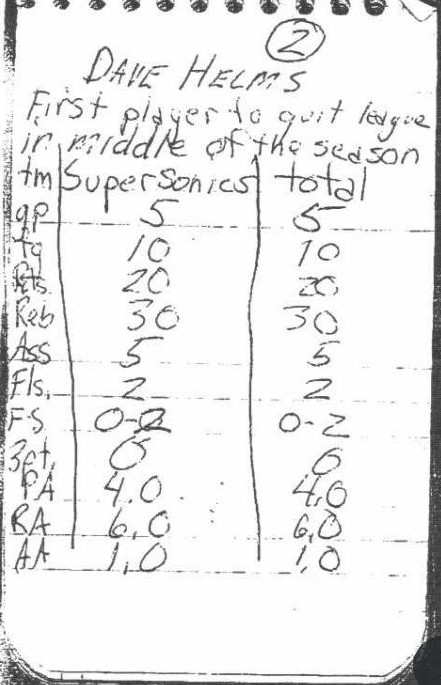 2
DAVE HELMS
First player to quit league
in middle of the season
tm SuperSonics total
gp 5 5
fg 10 10
Pts. 20 20
Reb 30 30
Ass 5 5
Fls. 2 2
FS 0-2 0-2
3pt. 0 0
PA 4.0 4.0
RA 6.0 6.0
AA 1.0 1.0